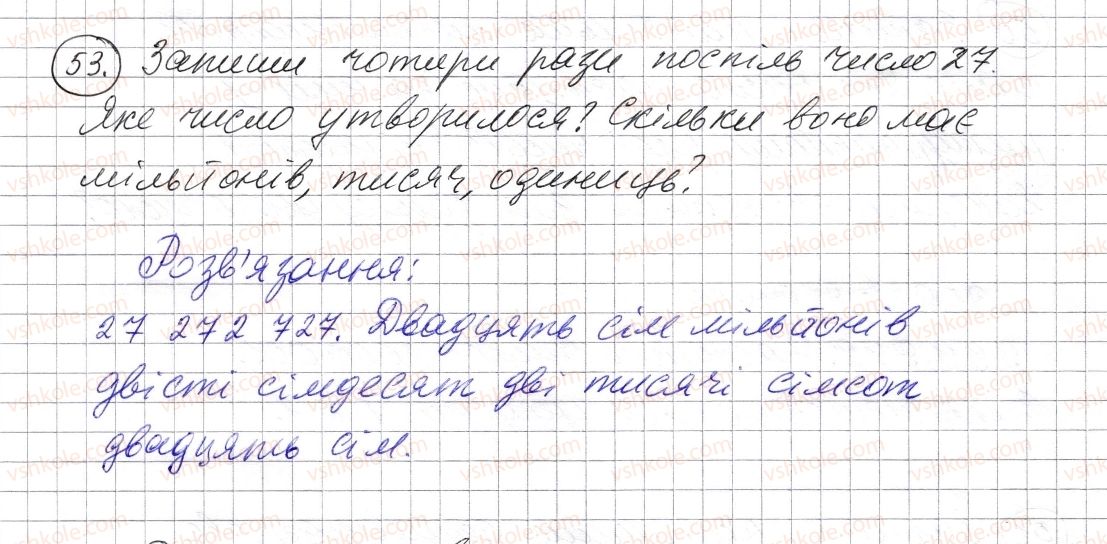 53. Запиши чотири рази поспіль число 27.
Яке число утворилося? Скільки воно має
мільйонів, тисяч, одиниць?
Розв'язання:
27 272 727. Двадцять сім мільйонів
двісті сімдесят дві тисячі сімсот
двадцять сім.